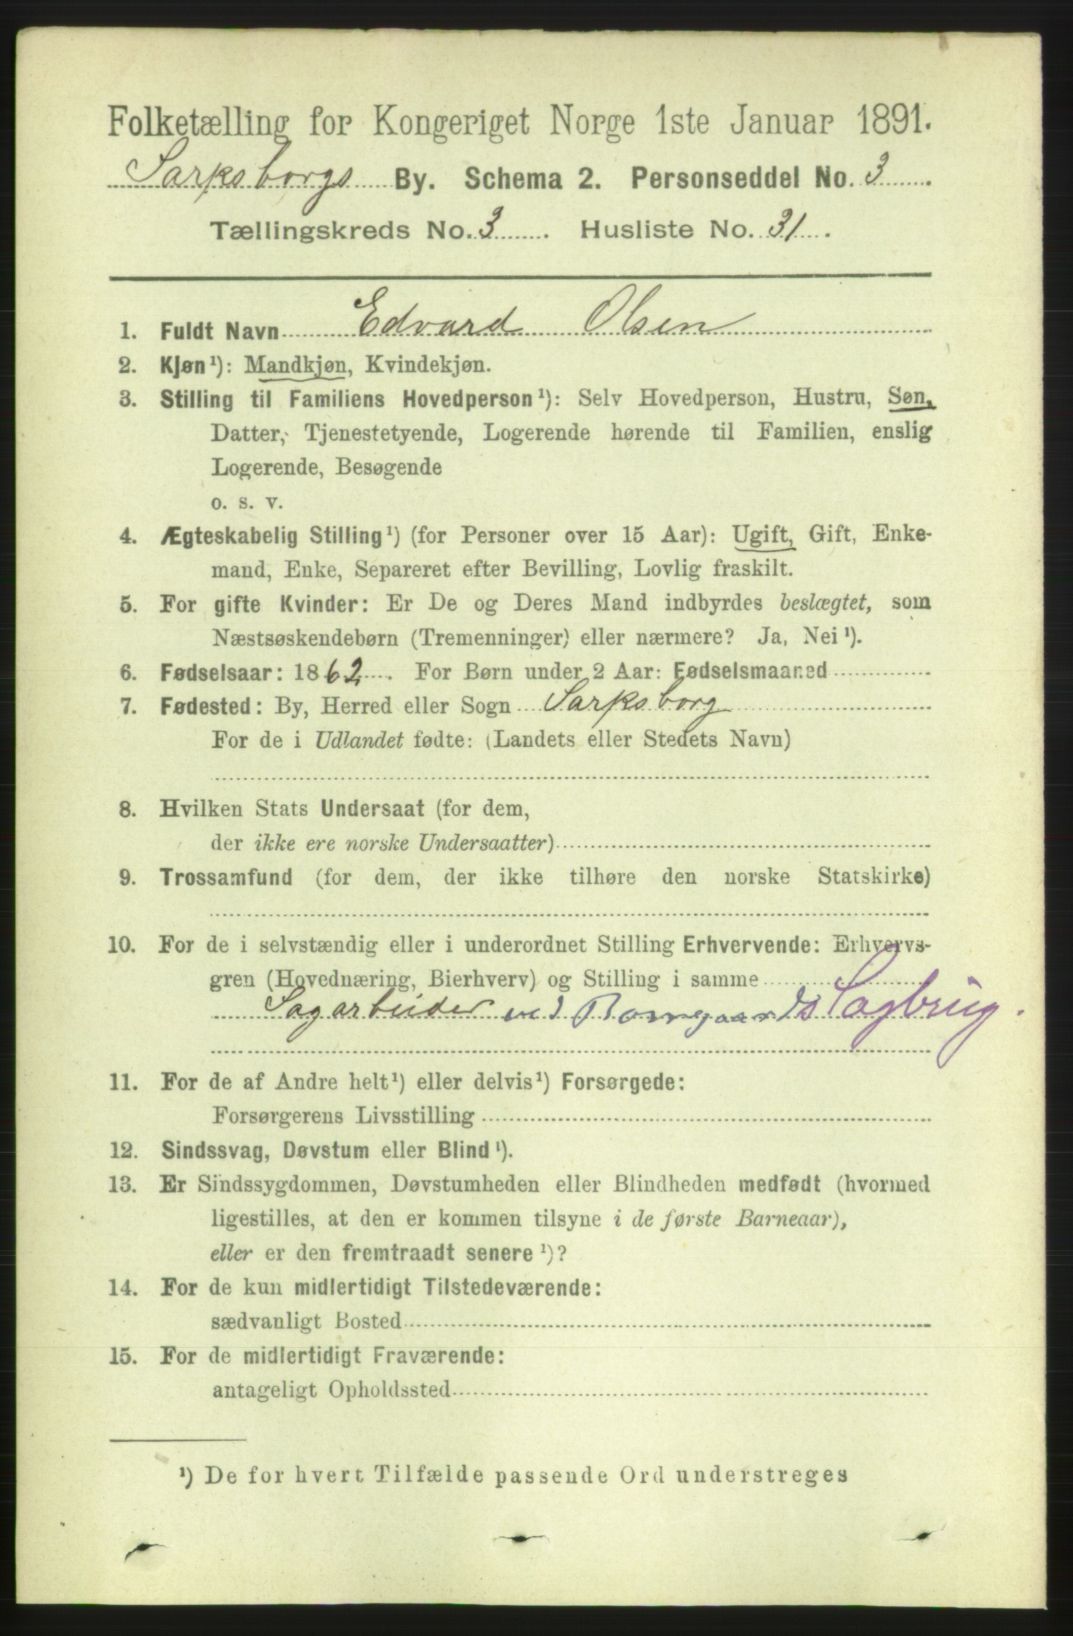 Folketælling for Kongeriget Norge 1ste Januar 1891.
Sarpsborgs By. Schema 2. Personseddel No. 3
Tællingskreds No. 3. Husliste No. 31.
1. Fuldt Navn Edvard Olsen
2. Kjøn¹): Mandkjøn, Kvindekjøn.
3. Stilling til Familiens Hovedperson¹): Selv Hovedperson, Hustru, Søn,
Datter, Tjenestetyende, Logerende hørende til Familien, enslig
Logerende, Besøgende
o. s. v.
4. Ægteskabelig Stilling¹) (for Personer over 15 Aar): Ugift, Gift, Enke-
mand, Enke, Separeret efter Bevilling, Lovlig fraskilt.
5. For gifte Kvinder: Er De og Deres Mand indbyrdes beslægtet, som
Næstsøskendebørn (Tremenninger) eller nærmere? Ja, Nei¹).
6. Fødselsaar: 1862. For Børn under 2 Aar: Fødselsmaaned
7. Fødested: By, Herred eller Sogn Sarpsborg
For de i Udlandet fødte: (Landets eller Stedets Navn)
8. Hvilken Stats Undersaat (for dem,
der ikke ere norske Undersaatter)
9. Trossamfund (for dem, der ikke tilhøre den norske Statskirke)
10. For de i selvstændig eller i underordnet Stilling Erhvervende: Erhvervs-
gren (Hovednæring, Bierhverv) og Stilling i samme
Sagarbeider ved Borregaards Sagbrug.
11. For de af Andre helt¹) eller delvis¹) Forsørgede:
Forsørgerens Livsstilling
12. Sindssvag, Døvstum eller Blind¹).
13. Er Sindssygdommen, Døvstumheden eller Blindheden medfødt (hvormed
ligestilles, at den er kommen tilsyne i de første Barneaar),
eller er den fremtraadt senere¹)?
14. For de kun midlertidigt Tilstedeværende:
sædvanligt Bosted
15. For de midlertidigt Fraværende:
antageligt Opholdssted
¹) De for hvert Tilfælde passende Ord understreges